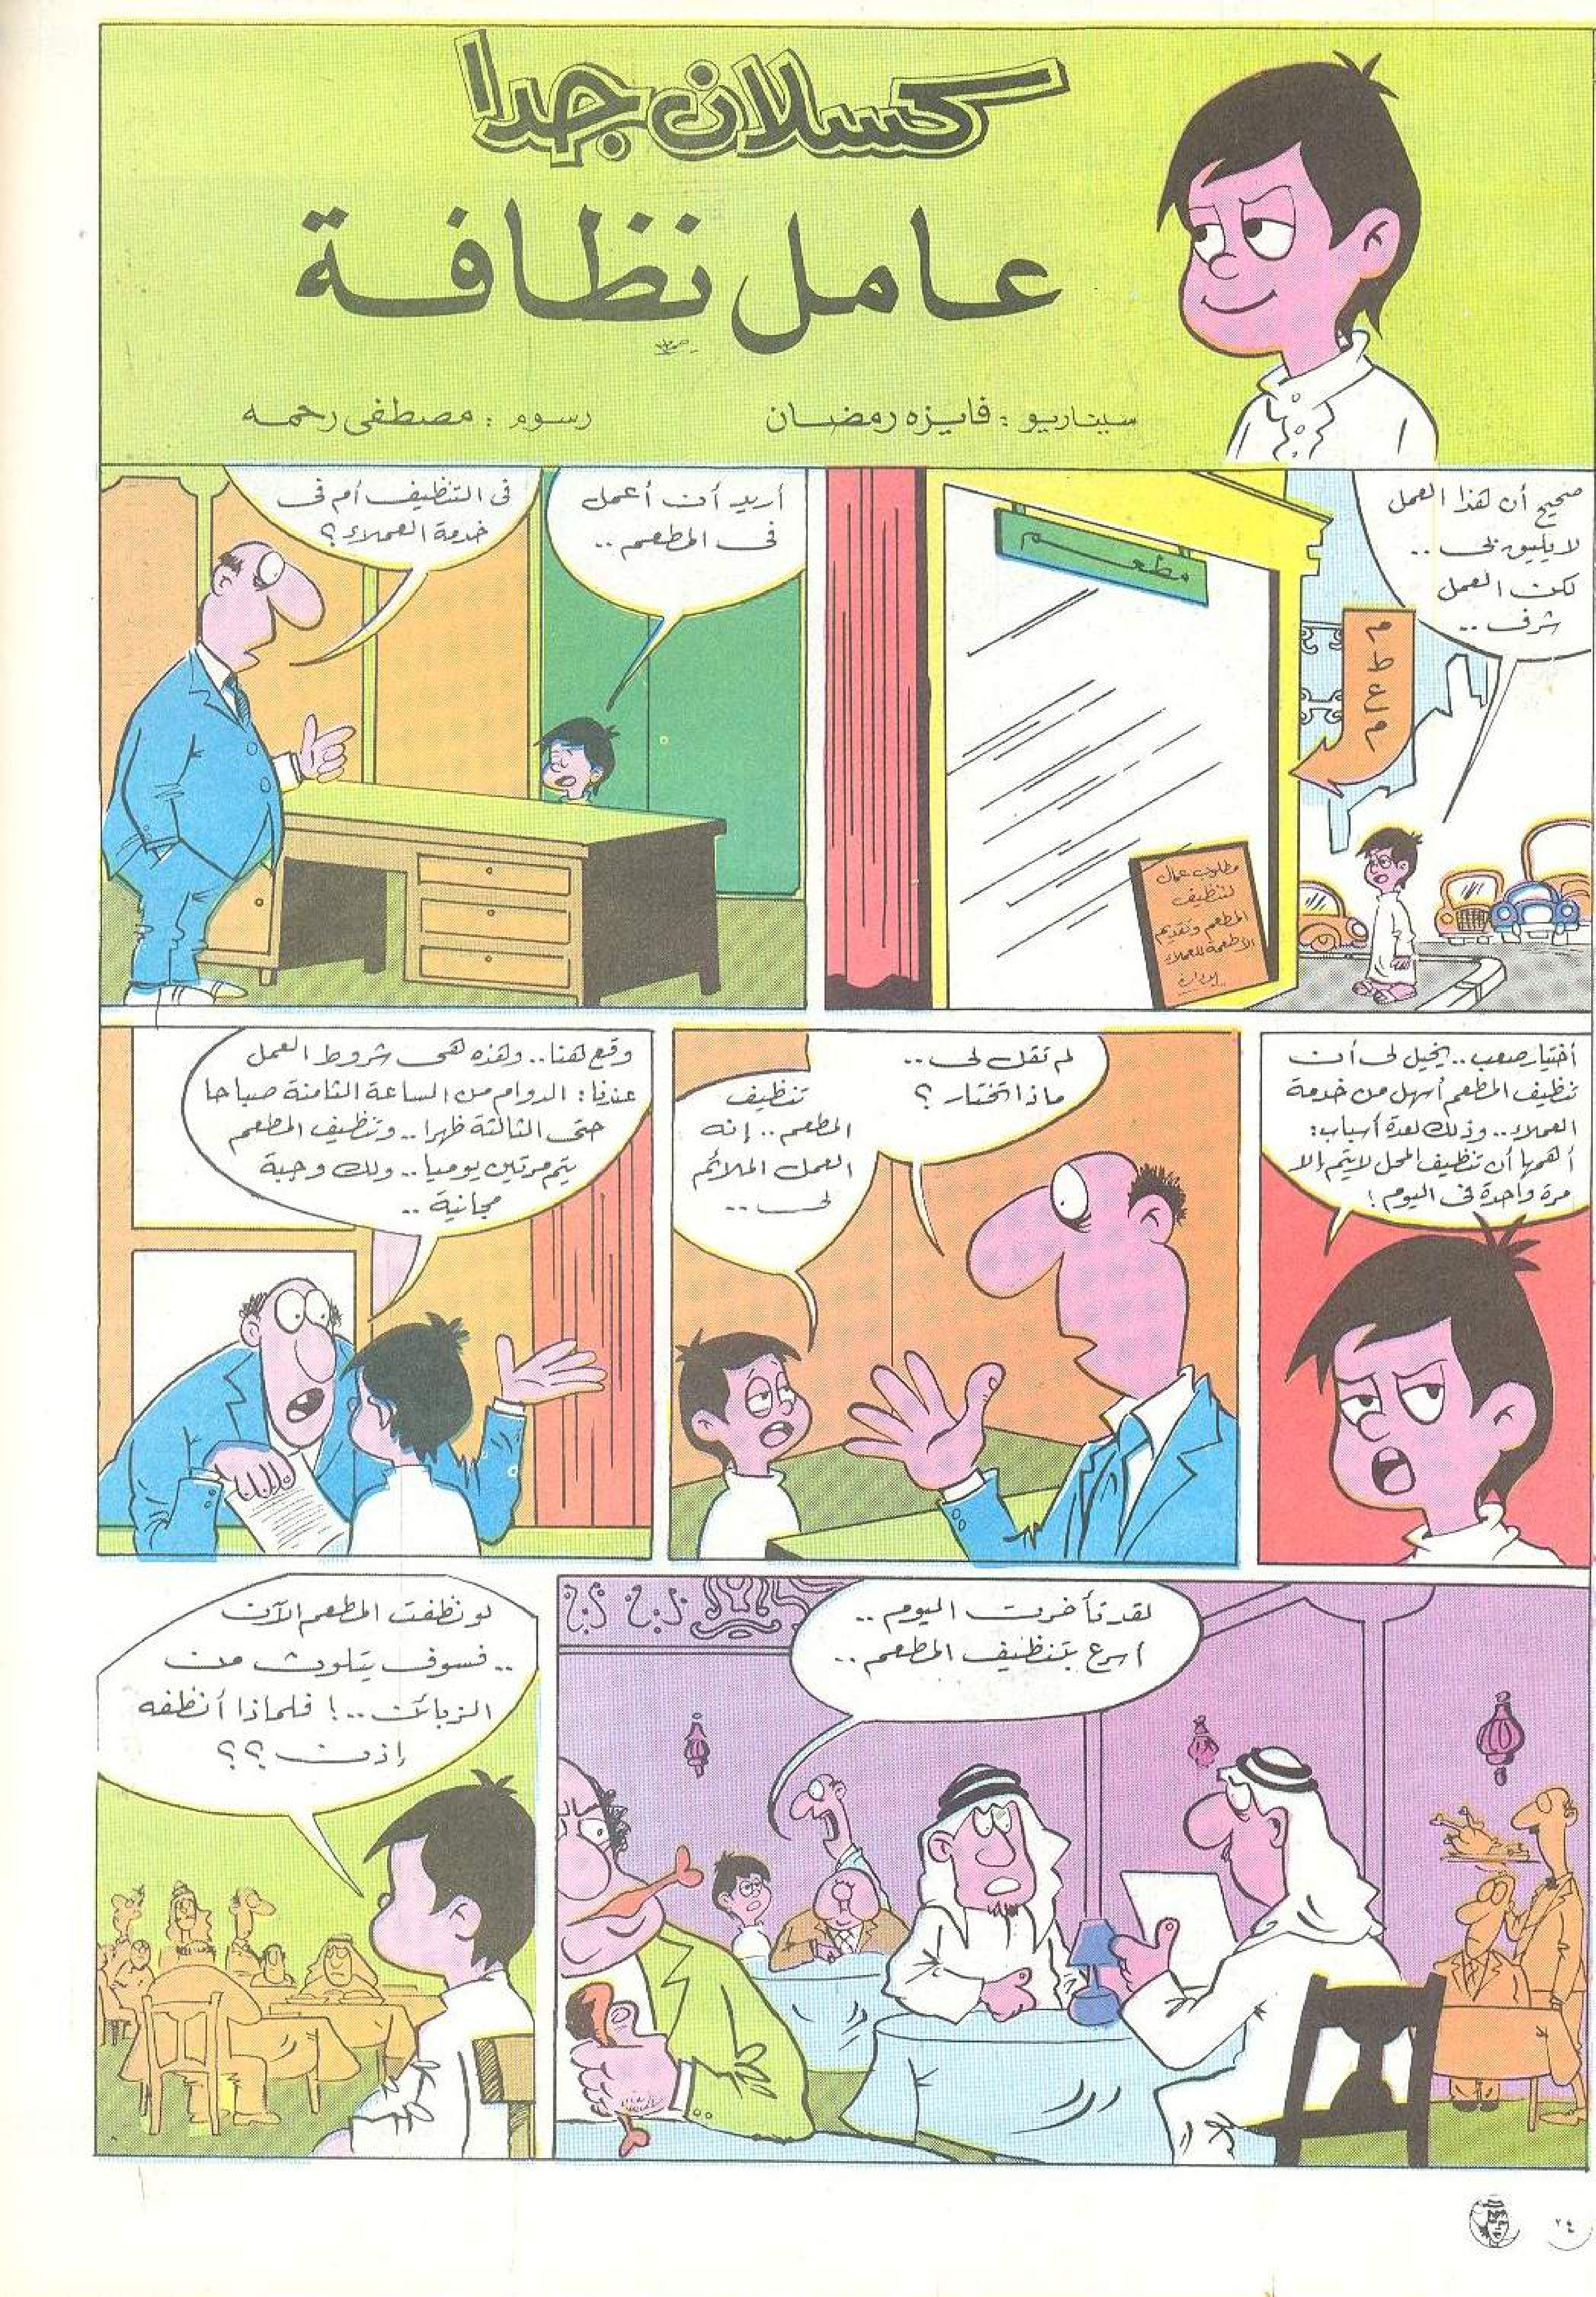 كسلان جدا
عامل نظافة
سيناريو : فايزه رمضان
رسوم : مصطفى رحمه
صحيح أن هذا العمل
لا يليق بى ..
لكن العمل
شرف ..
مطعم
مطعم
مطلوب عمال
لتنظيف
المطعم وتقديم
الأطعمة للعملاء
الإدارة
أريد أن أعمل
فى المطعم ..
فى التنظيف أم فى
خدمة العملاء ؟
أختيار صعب .. يخيل لى أن
تنظيف المطعم أسهل من خدمة
العملاء .. وذلك لعدة أسباب :
أهمها أن تنظيف المحل لا يتم إلا
مرة واحدة فى اليوم !
لم تقل لى ..
ماذا تختار ؟
تنظيف
المطعم .. إنه
العمل الملائم
لى ..
وقع هنا .. وهذه هى شروط العمل
عندنا : الدوام من الساعة الثامنة صباحا
حتى الثالثة ظهرا .. وتنظيف المطعم
يتم مرتين يوميا .. ولك وجبة
مجانية ..
لقد تأخرت اليوم ..
أسرع بتنظيف المطعم ..
لو نظفت المطعم الآن
.. فسوف يتلوث من
الزبائن .. ! فلماذا أنظفه
إذن ؟؟
٢٤